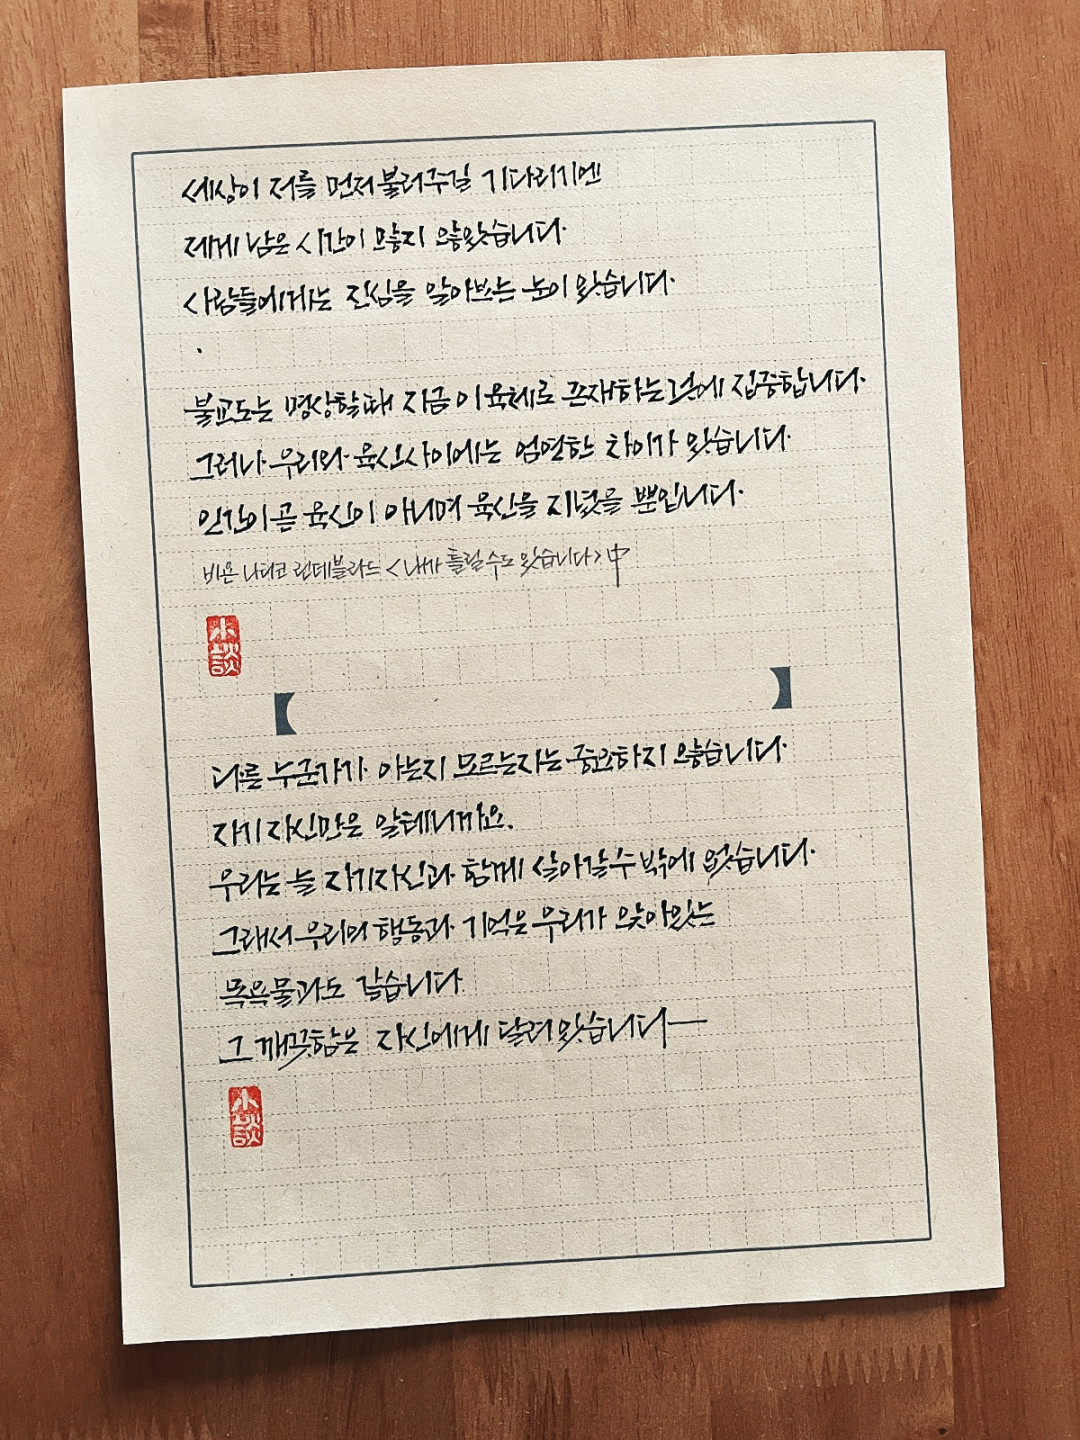 세상이 저를 먼저 불러주길 기다리기엔
제게 남은 시간이 많지 않았습니다.
사람들에게는 진심을 알아보는 눈이 있습니다.
.
불교도는 명상할때 지금 이 육체로 존재하는 것에 집중합니다.
그러나 우리와 육신사이에는 엄연한 차이가 있습니다.
인간이 곧 육신이 아니며 육신을 지녔을 뿐입니다.
비욘 나티코 린데블라드 <내가 틀릴 수도 있습니다> 中
小談
다른 누군가가 아는지 모르는지는 중요하지 않습니다.
자기 자신만은 알테니까요.
우리는 늘 자기자신과 함께 살아갈 수 밖에 없습니다.
그래서 우리의 행동과 기억은 우리가 앉아있는
목욕물과도 같습니다
그 깨끗함은 자신에게 달려있습니다—
小談